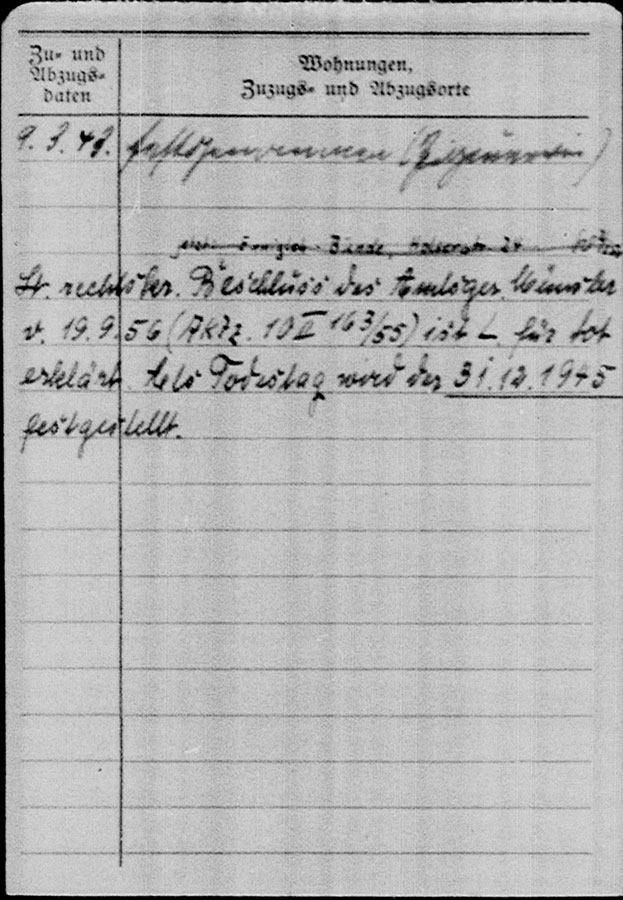 Zu- und
Abzugs-
daten
Wohnungen,
Zuzugs- und Abzugsorte
9.3.43. festgenommen (Zigeunerin)
Bünde,
Lt. rechtskr. Beschluss des Amtsger. Münster
v. 19.9.56 (Aktz. 10 II 163/55) ist L. für tot
erklärt. Als Todestag wird der 31.12.1945
festgestellt.